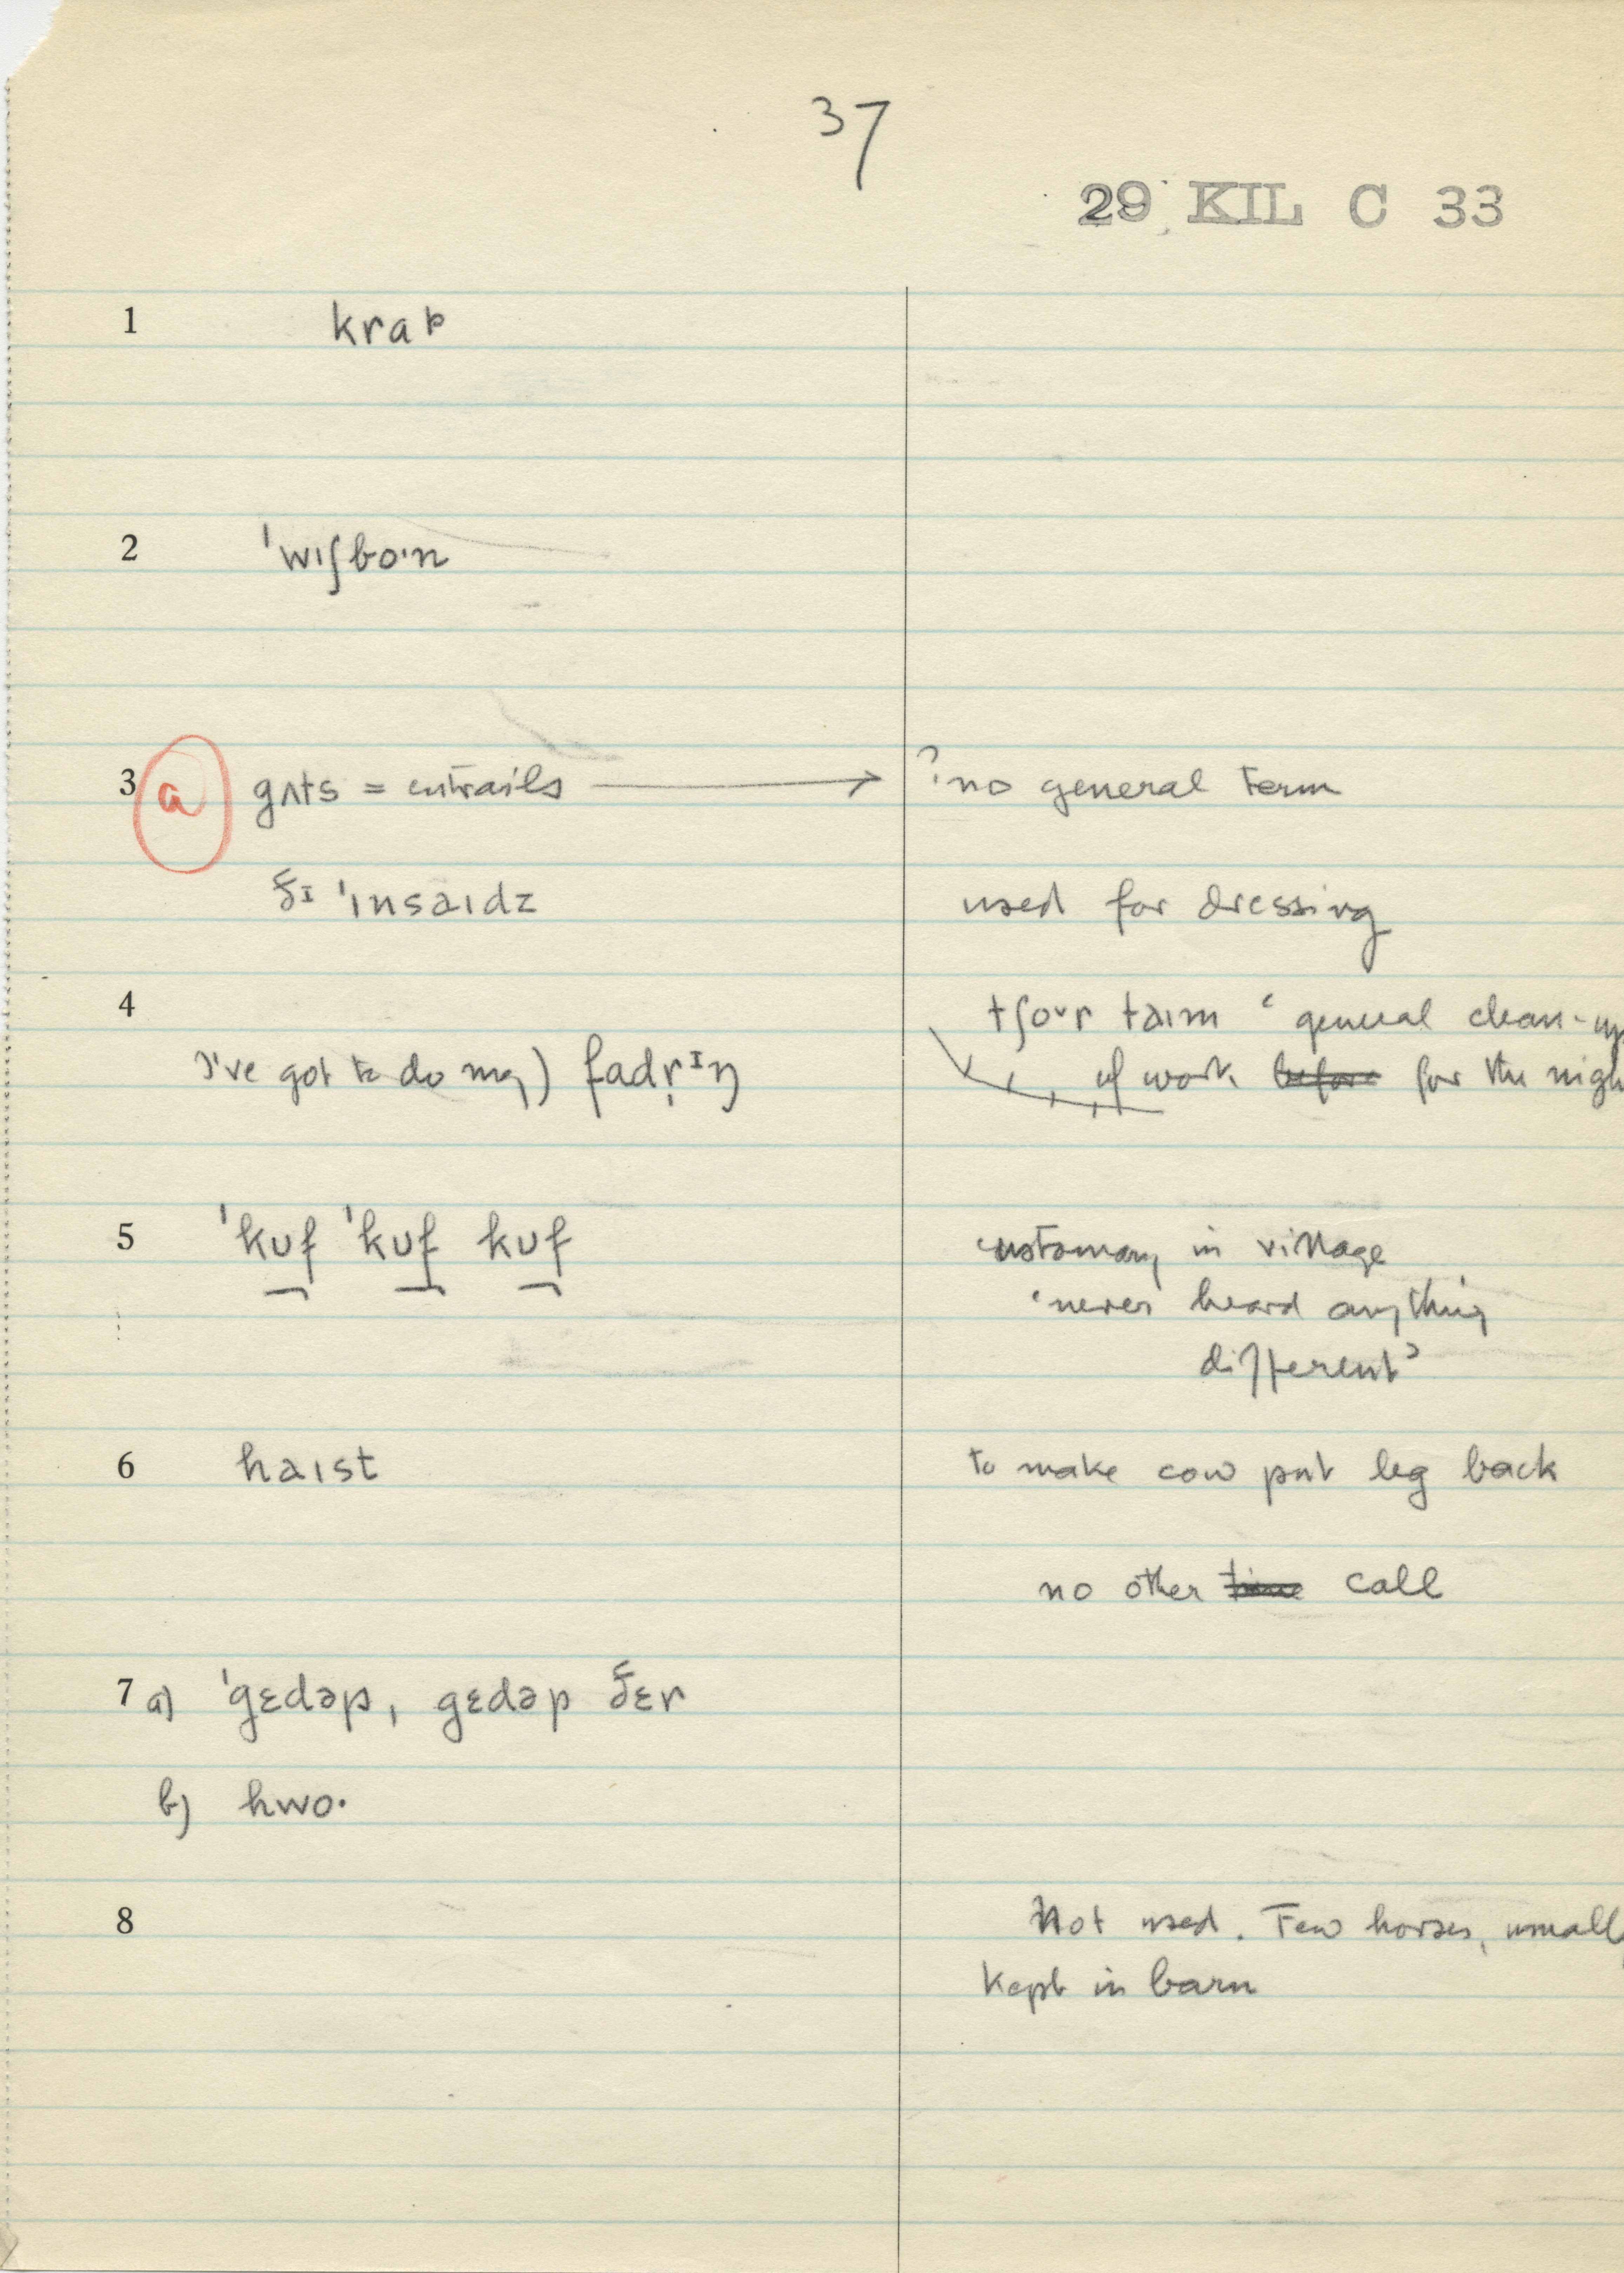 37
29 KIL C 33
1 krap
2 ˈwɪʃboˑn
3 a gʌts = entrails → ? no general term
ðɪ ˈɪnsaɪdz used for dressing
4 tʃoʊr taɪm ‘general clean-up
I've got to do my) fadr̩ɪŋ of work before for the nigh
5 ˈkʊf ˈkʊf kʊf customary in village
‘never heard anything
different’
6 haɪst to make cow put leg back
no other time call
7 a) ˈgɛdəp, gɛdəp ðɛr
b) hwoˑ
8 Not used. Few horses, usually
kept in barn